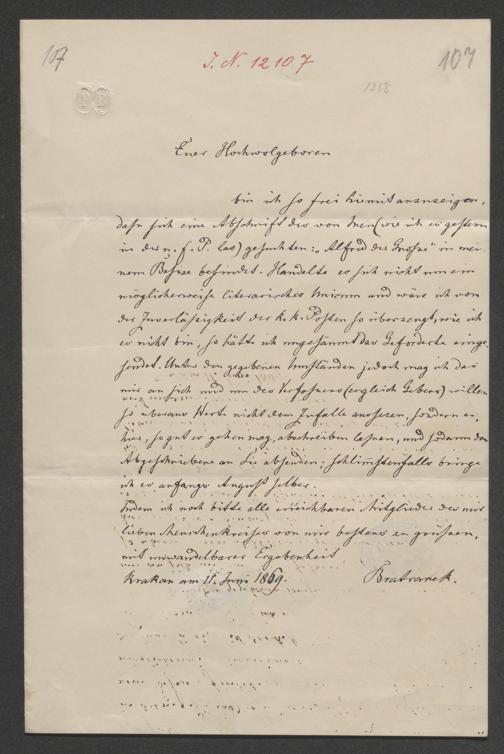 107
I. N. 12107
107
1358
Euer Hochwolgeboren
bin ich so frei hiemit anzuzeigen,
dass sich eine Abschrift des von Inen (wie ich es gestern
in der n. f. P. las) gesuchten: „Alfred der Grosse" in mei-
nem Besize befindet. Handelte es sich nicht um ein
möglicherweise literarisches Unicum und wäre ich von
der Zuverlässigkeit der k. k. Posten so überzeugt, wie ich
es nicht bin, so hätte ich ungesäumt das Geforderte einge-
sendet. Unter den gegebenen Umständen jedoch mag ich das
mir an sich und um des Verfassers (zugleich Gebers) willen
so überaus Werte nicht dem Zufalle aussezen, sondern es
hier, so gut es gehen mag, abschreiben lassen, und sodann das
Abgeschriebene an Sie absenden; schlimmstenfalls bringe
ich es anfangs August selber.
Indem ich noch bitte alle erreichbaren Mitglieder des mir
lieben Menschenkreises von mir bestens zu grüssen,
mit unwandelbarer Ergebenheit
Krakau am 11. Juni 1869. Bratranek.